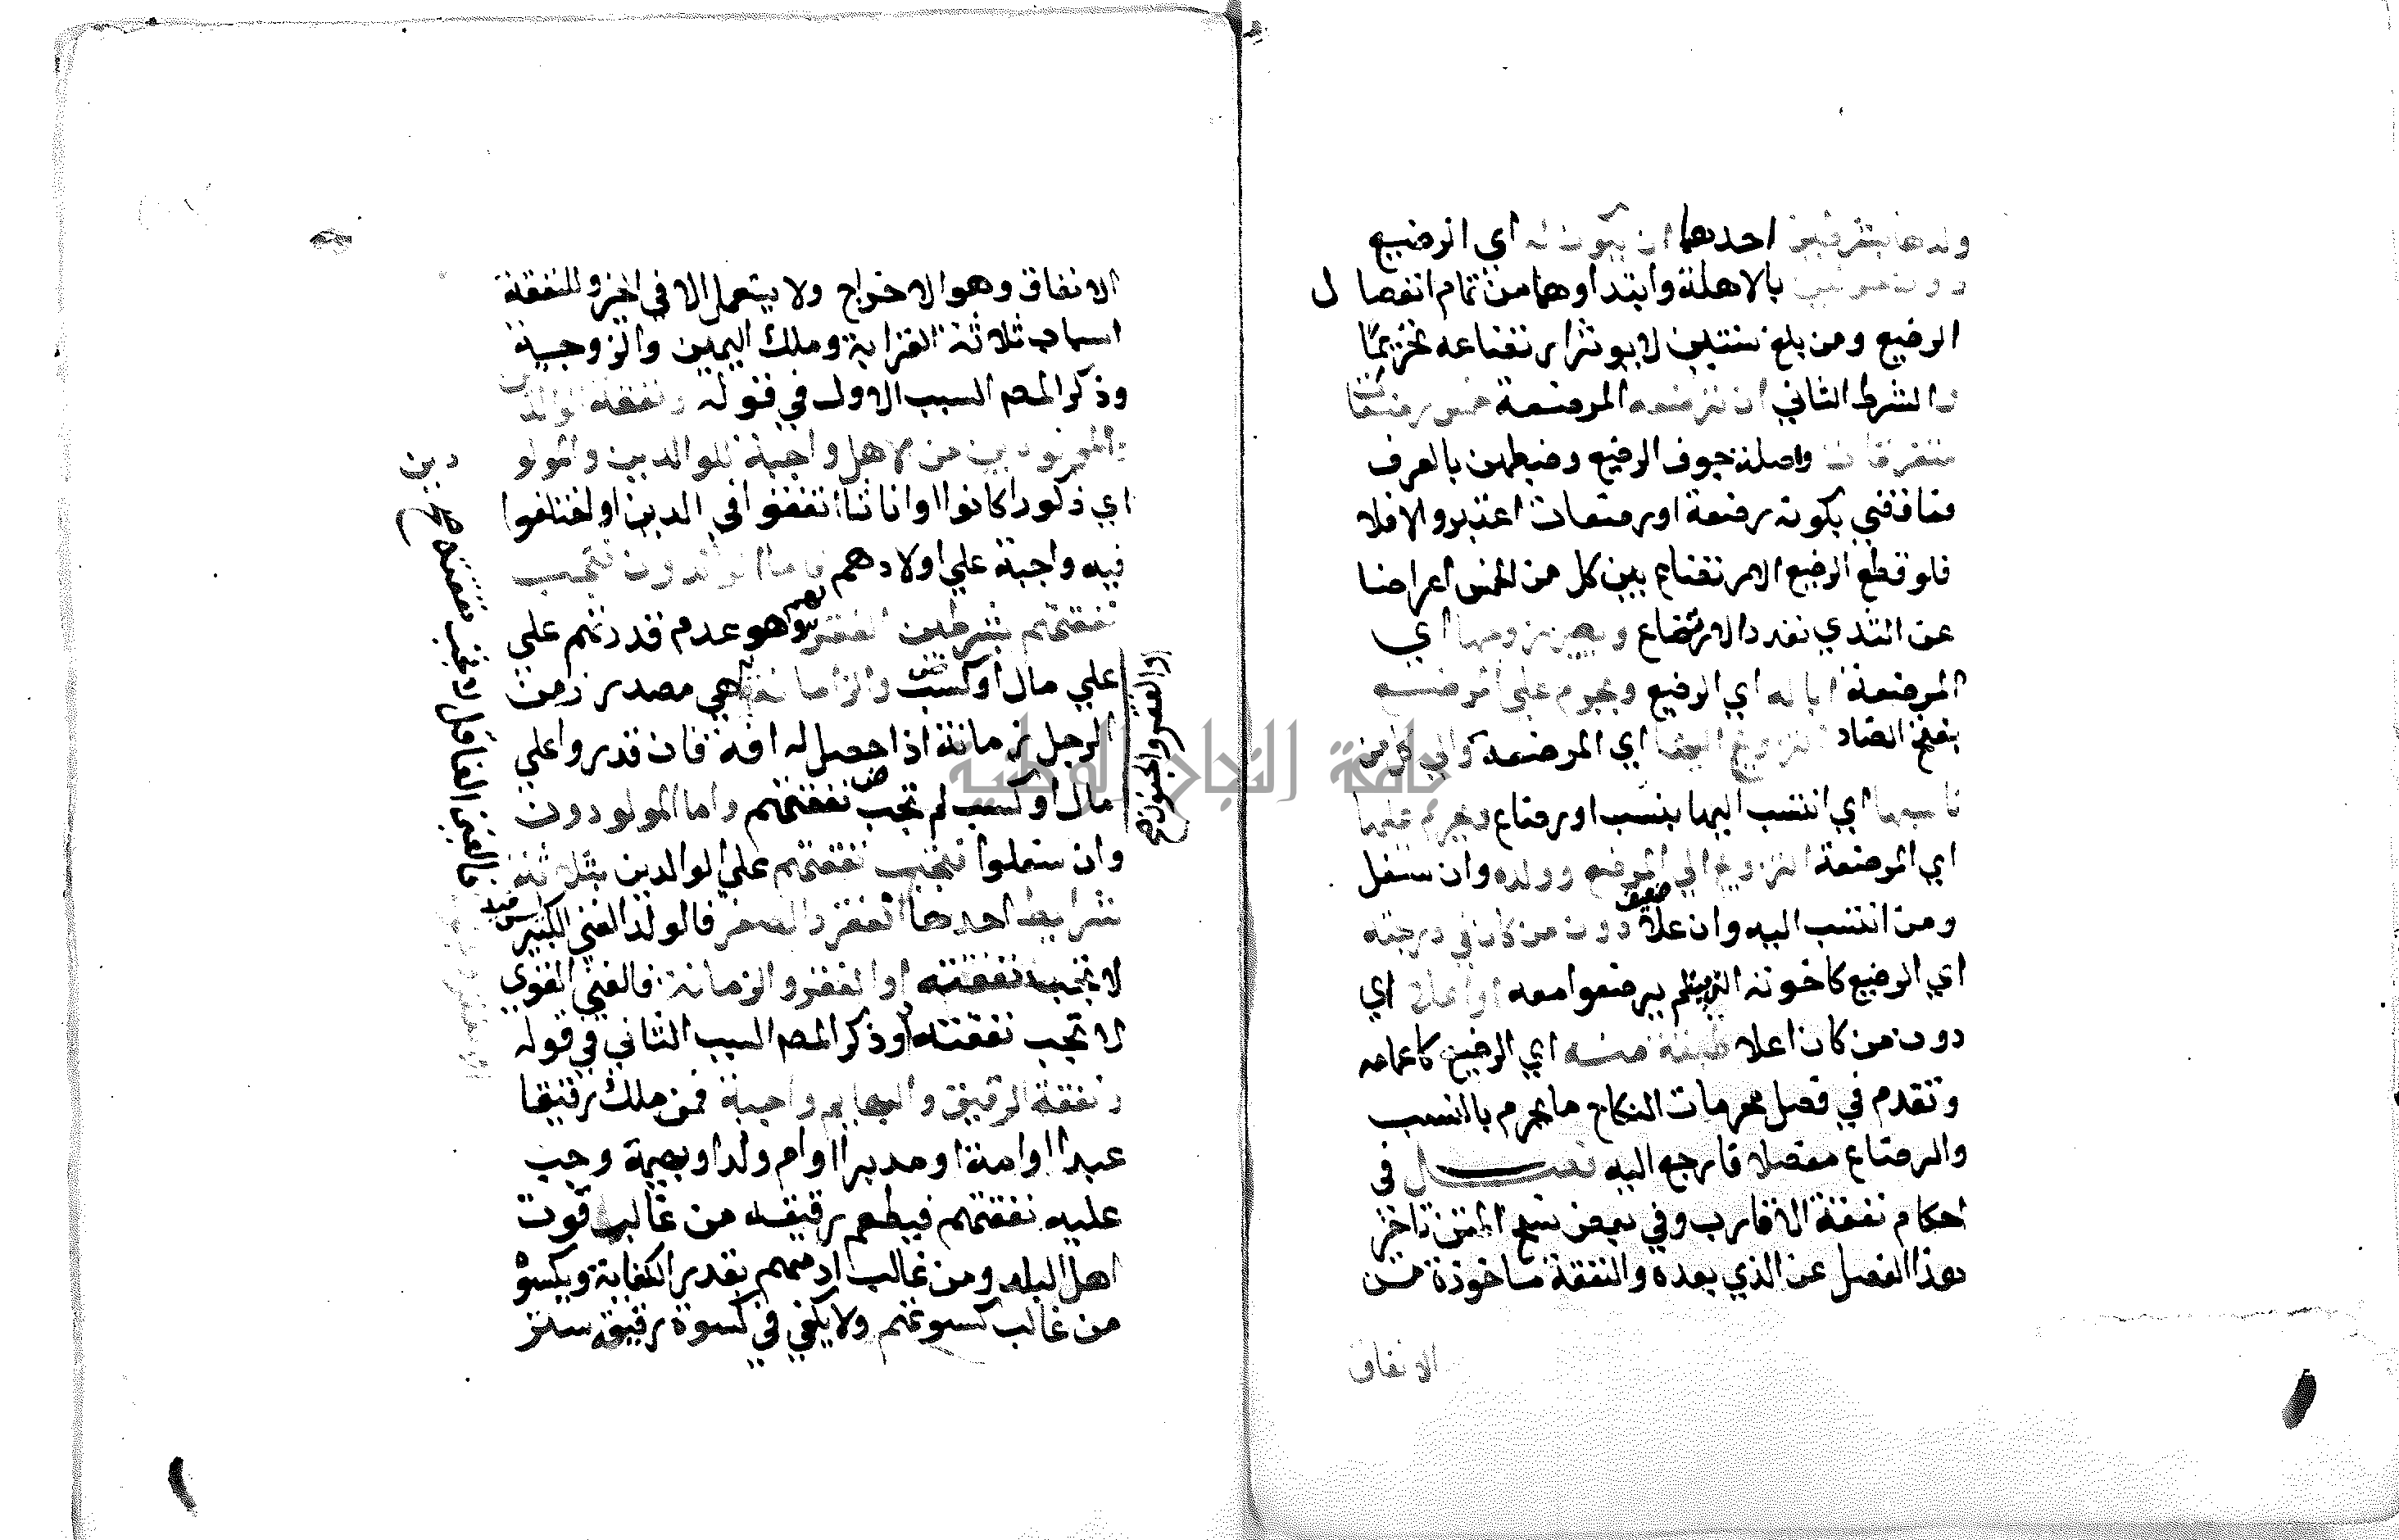 ولدها بشرطين احدهما ان يكون له اي الرضيع
دون حولين بالاهلة وابتداوهما من تمام انفصال
الرضيع ومن بلغ سنتين لا يوثر ارتضاعه تحريما
والشرط الثاني ان ترضعه المرضعة خمس رضعات
متفرقات واصلة جوف الرضيع وضبطهن بالعرف
فما قضي بكونه رضعة او رضعات اعتبر والا فلا
فلو قطع الرضيع الارتضاع بين كل من الخمس اعراضا
عن الثدي تعدد الارتضاع ويصير زوجها اي
المرضعة ابا له اي الرضيع ويحرم على المرضع
بفتح الضاد التزويج اليها اي المرضعة والى كل من
ناسبها اي انتسب اليها بنسب او رضاع ويحرم عليها
اي المرضعة التزويج الى المرضع وولده وان سفل
ومن انتسب اليه وان علا دون من كان في درجته
اي الرضيع كاخوته الذين لم يرضعوا معه او اعلا اي
دون من كان اعلا طبقة منه اي الرضيع كاعمامه
وتقدم في فصل محرمات النكاح ما يحرم بالنسب
والرضاع مفصلا فارجع اليه فصل في
احكام نفقة الاقارب وفي بعض نسخ المتن تاخير
هذا الفصل عن الذي بعده والنفقة ماخوذة من
الانفاق
الانفاق وهو الاخراج ولا يستعمل الا في الخير وللنفقة
اسباب ثلاثة القرابة وملك اليمين والزوجية
وذكر المصم السبب الاول في قوله ونفقة الوالدين
والمولودين من الاهل واجبة للوالدين والمولو
دين
اي ذكورا كانوا او اناثا اتفقوا في الدين او اختلفوا
فيه واجبة على اولادهم فاما الوالدون فتجب
نفقتهم بشرطين الفقر لهم وهو عدم قدرتهم على
على مال او كسب والزمانة هي مصدر زمن
الرجل زمانة اذا حصل له افة فان قدروا على
مال او كسب لم تجب نفقتهم واما المولودون
وان سفلوا فتجب نفقتهم على الوالدين بثلاثة
شرايط احدها الفقر والصغر فالولد الغني الكبير
لا تجب نفقته او الفقر والزمانة فالغني القوي
لا تجب نفقته وذكر المصم السبب الثاني في قوله
ونفقة الرقيق والبهايم واجبة فمن ملك رقيقا
عبدا او امة او مدبرا او ام ولد او بهيمة وجب
عليه نفقتهم فيطعم رقيقه من غالب قوت
اهل البلد ومن غالب ادمهم بقدر الكفاية ويكسو
من غالب كسوتهم ولا يكفي في كسوة رقيقه ستر
او الفقر والجنون صح
فالغني العاقل لا تجب نفقته صح